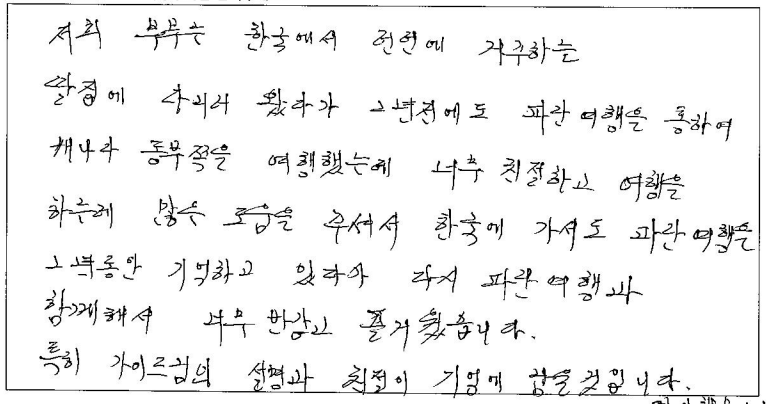 저희 부부는 한국에서 런던에 거주하는
딸집에 다니러 왔다가 2년전에도 파란여행을 통하여
캐나다 동부쪽을 여행했는데 너무 친절하고 여행을
하는데 많은 도움을 주셔서 한국에 가서도 파란여행을
2년동안 기억하고 있다가 다시 파란여행과
함께해서 너무 반갑고 즐거웠습니다.
특히 가이드님의 설명과 친절이 기억에 남을것입니다.